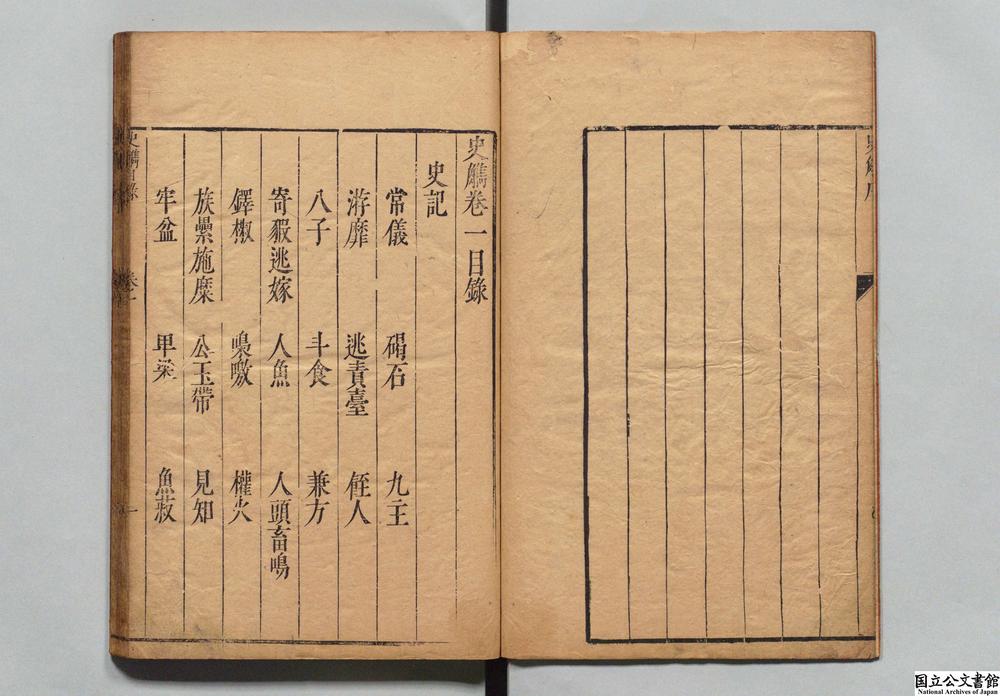 史觿卷一目錄
史記
常儀 碣石 九主
游靡 逃責臺 俹人
八子 斗食 兼方
寄豭逃嫁 人魚 人頭畜鳴
鐸椒 嘄噭 權火
族纍施糜 公玉帶 見知
牢盆 甲梁 魚菽
史觿目錄 卷一 一
国立公文書館
National Archives of Japan